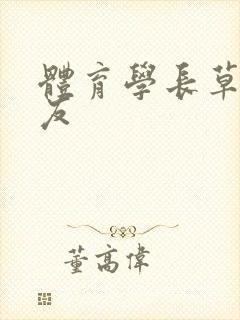 體育學長草
友
董高偉